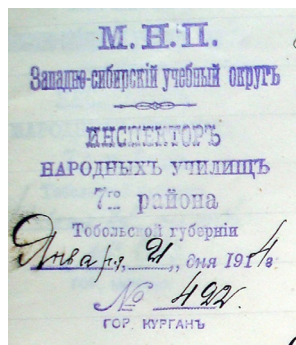 М. Н. П.
Западно-сибирскій учебный округъ
ИНСПЕКТОРЪ
НАРОДНЫХЪ УЧИЛИЩЪ
7го района
Тобольской губерніи
Января, 21 „ дня 1914 г.
№ 422.
ГОР. КУРГАНЪ